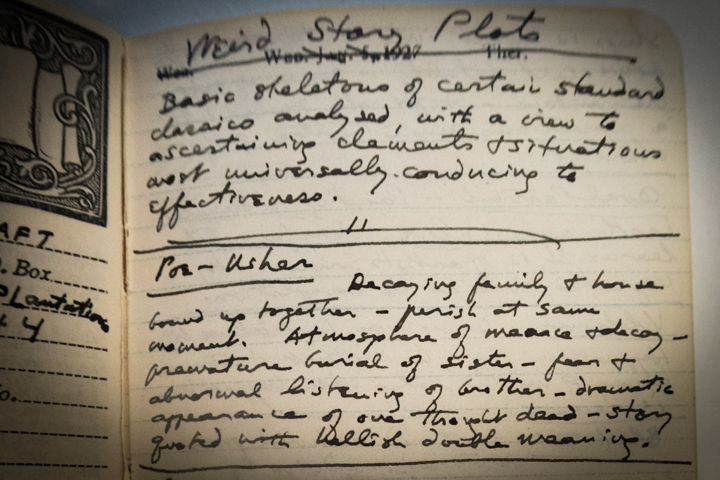 Weird Story Plots
Wea. Wed. Jan. 5, 1927 Ther.
Basic skeletons of certain standard
classics analysed, with a view to
ascertaining elements & situations
most universally conducing to
effectiveness.
11
Poe — Usher
Decaying family & house
bound up together — perish at same
moment. Atmosphere of menace & decay —
premature burial of sister — fear &
abnormal listening of brother — dramatic
appearance of one thought dead — story
quoted with hellish double meaning.
AFT
. Box
Plantations
4
o.